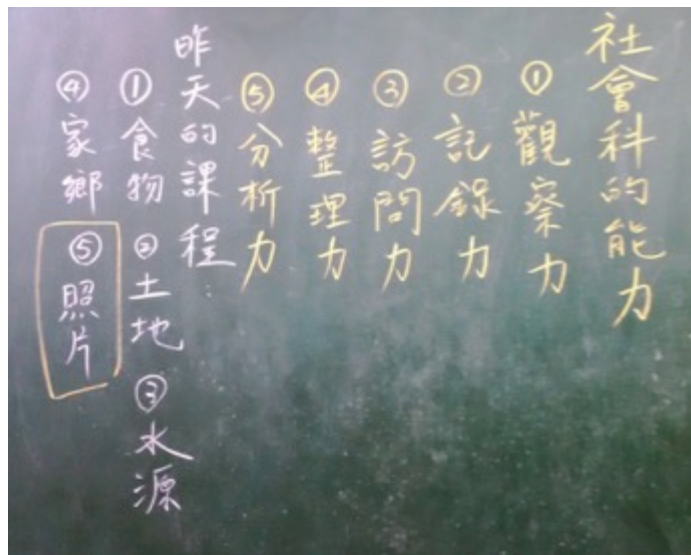 社會科的能力
①觀察力
②記錄力
③訪問力
④整理力
⑤分析力
昨天的課程：
①食物②土地③水源
④家鄉⑤照片